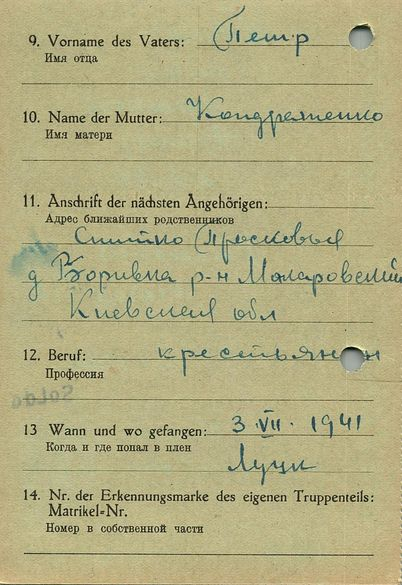 9. Vorname des Vaters: Петр
Имя отца
10. Name der Mutter: Кондратенко
Имя матери
11. Anschrift der nächsten Angehörigen:
Адрес ближайших родственников
Прасковья
д р-н Макаровский
Киевская обл
12. Beruf: крестьянин
Профессия
13 Wann und wo gefangen: 3 VII. 1941
Когда и где попал в плен
Луцк
14. Nr. der Erkennungsmarke des eigenen Truppenteils:
Matrikel=Nr.
Номер в собственной части